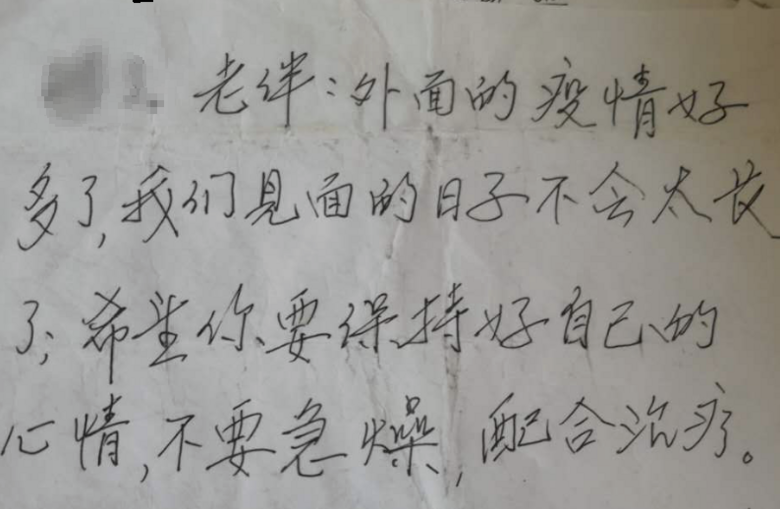 老伴：外面的疫情好
多了，我们见面的日子不会太长
了；希望你要保持好自己的
心情，不要急燥，配合治疗。